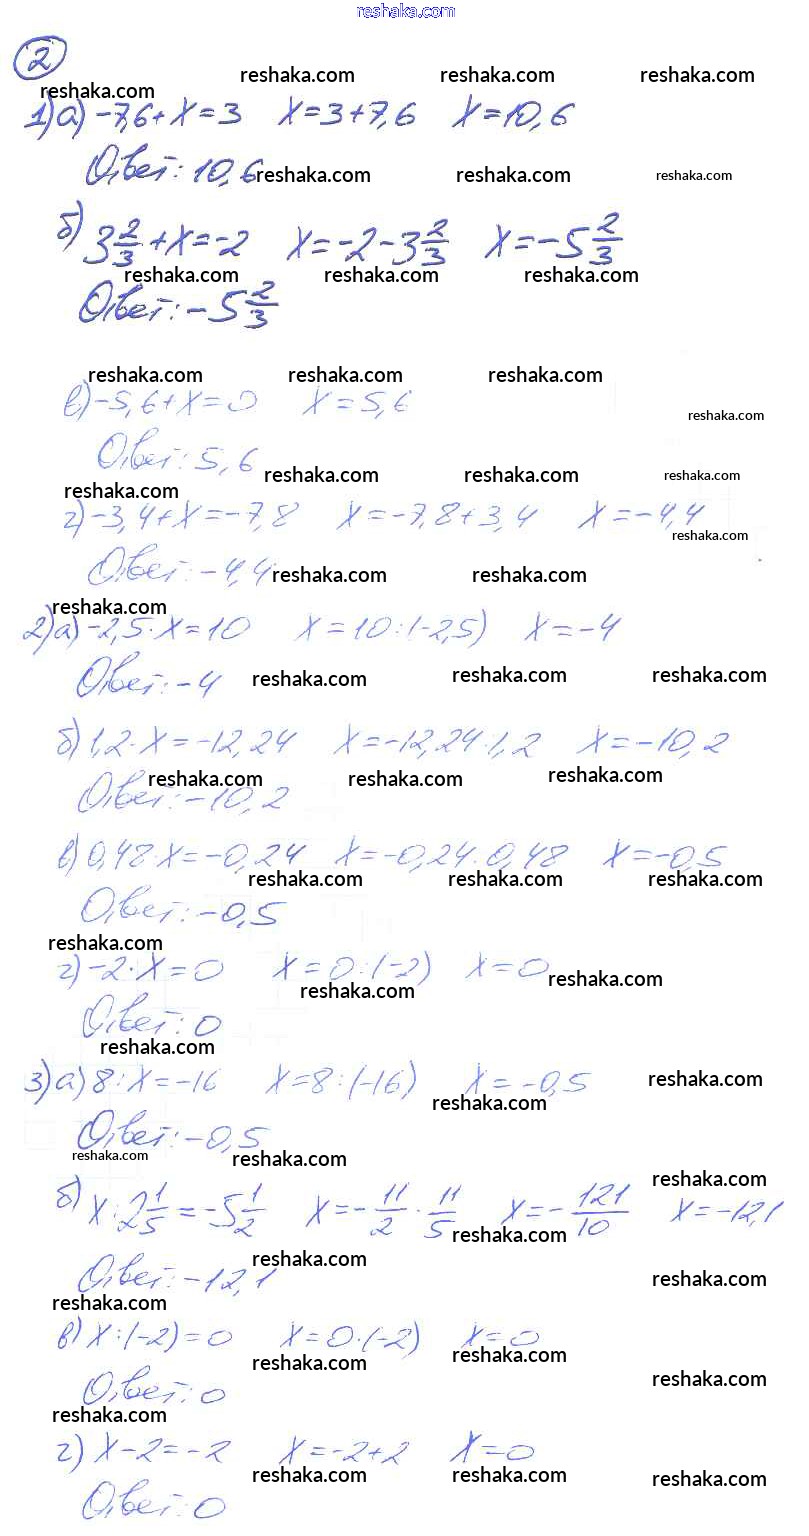 reshaka.com
2
reshaka.com reshaka.com reshaka.com reshaka.com
1) а) -7,6+x=3 x=3+7,6 x=10,6
Ответ: 10,6 reshaka.com reshaka.com reshaka.com
б) 3 2/3 + x = -2 x = -2 - 3 2/3 x = -5 2/3
reshaka.com reshaka.com reshaka.com
Ответ: -5 2/3
reshaka.com reshaka.com reshaka.com
в) -5,6+x=0 x=5,6 reshaka.com
Ответ: 5,6
reshaka.com reshaka.com reshaka.com reshaka.com
г) -3,4+x=-7,8 x=-7,8+3,4 x=-4,4
reshaka.com
Ответ: -4,4 reshaka.com reshaka.com
reshaka.com
2) а) -2,5·x=10 x=10:(-2,5) x=-4
Ответ: -4 reshaka.com reshaka.com reshaka.com
б) 1,2·x=-12,24 x=-12,24:1,2 x=-10,2
reshaka.com reshaka.com reshaka.com
Ответ: -10,2
в) 0,48·x=-0,24 x=-0,24:0,48 x=-0,5
reshaka.com reshaka.com reshaka.com
Ответ: -0,5
reshaka.com
г) -2·x=0 x=0:(-2) x=0 reshaka.com
reshaka.com
Ответ: 0
reshaka.com
3) а) 8:x=-16 x=8:(-16) x=-0,5 reshaka.com
reshaka.com
Ответ: -0,5
reshaka.com reshaka.com reshaka.com
б) x:2 1/5 = -5 1/2 x = -11/2 · 11/5 x = -121/10 x=-12,1
reshaka.com
Ответ: -12,1 reshaka.com reshaka.com
reshaka.com
в) x:(-2)=0 x=0·(-2) x=0
reshaka.com reshaka.com reshaka.com
Ответ: 0
reshaka.com
г) x-2=-2 x=-2+2 x=0
reshaka.com reshaka.com reshaka.com
Ответ: 0